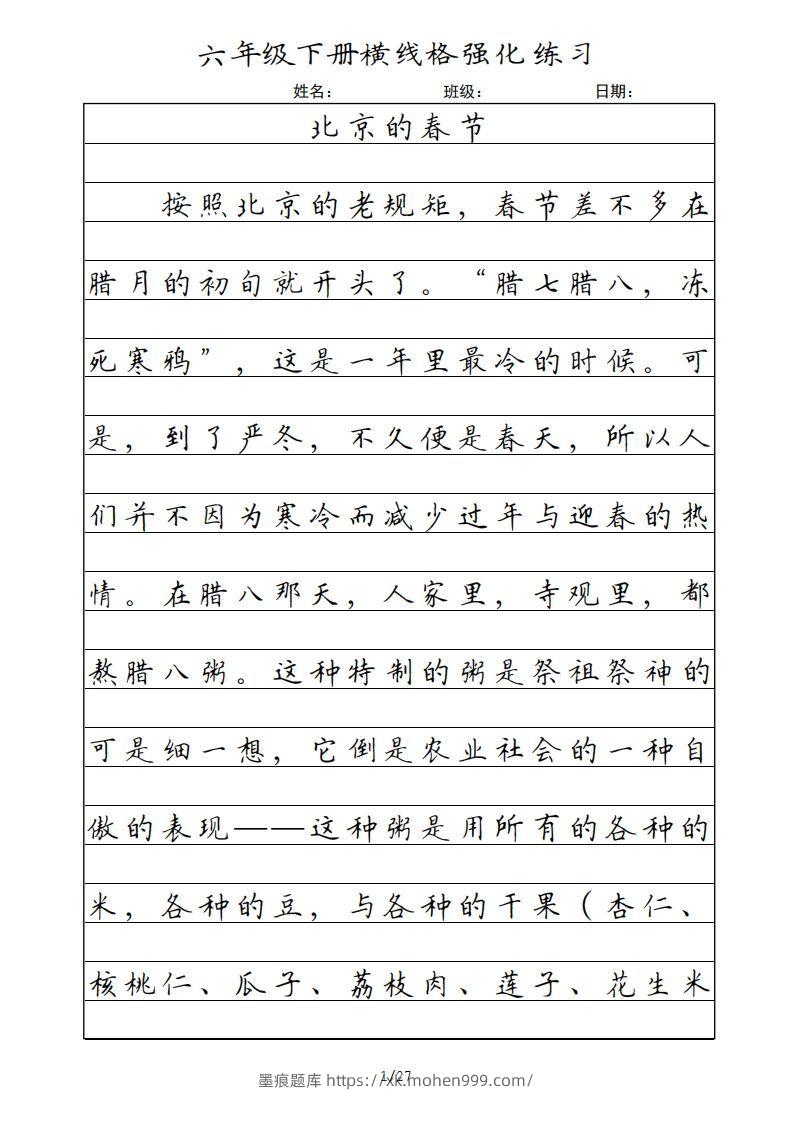 六年级下册横线格强化练习
姓名： 班级： 日期：
北京的春节
按照北京的老规矩，春节差不多在
腊月的初旬就开头了。“腊七腊八，冻
死寒鸦”，这是一年里最冷的时候。可
是，到了严冬，不久便是春天，所以人
们并不因为寒冷而减少过年与迎春的热
情。在腊八那天，人家里，寺观里，都
熬腊八粥。这种特制的粥是祭祖祭神的
可是细一想，它倒是农业社会的一种自
傲的表现——这种粥是用所有的各种的
米，各种的豆，与各种的干果（杏仁、
核桃仁、瓜子、荔枝肉、莲子、花生米
1/27
墨痕题库 https://xk.mohen999.com/